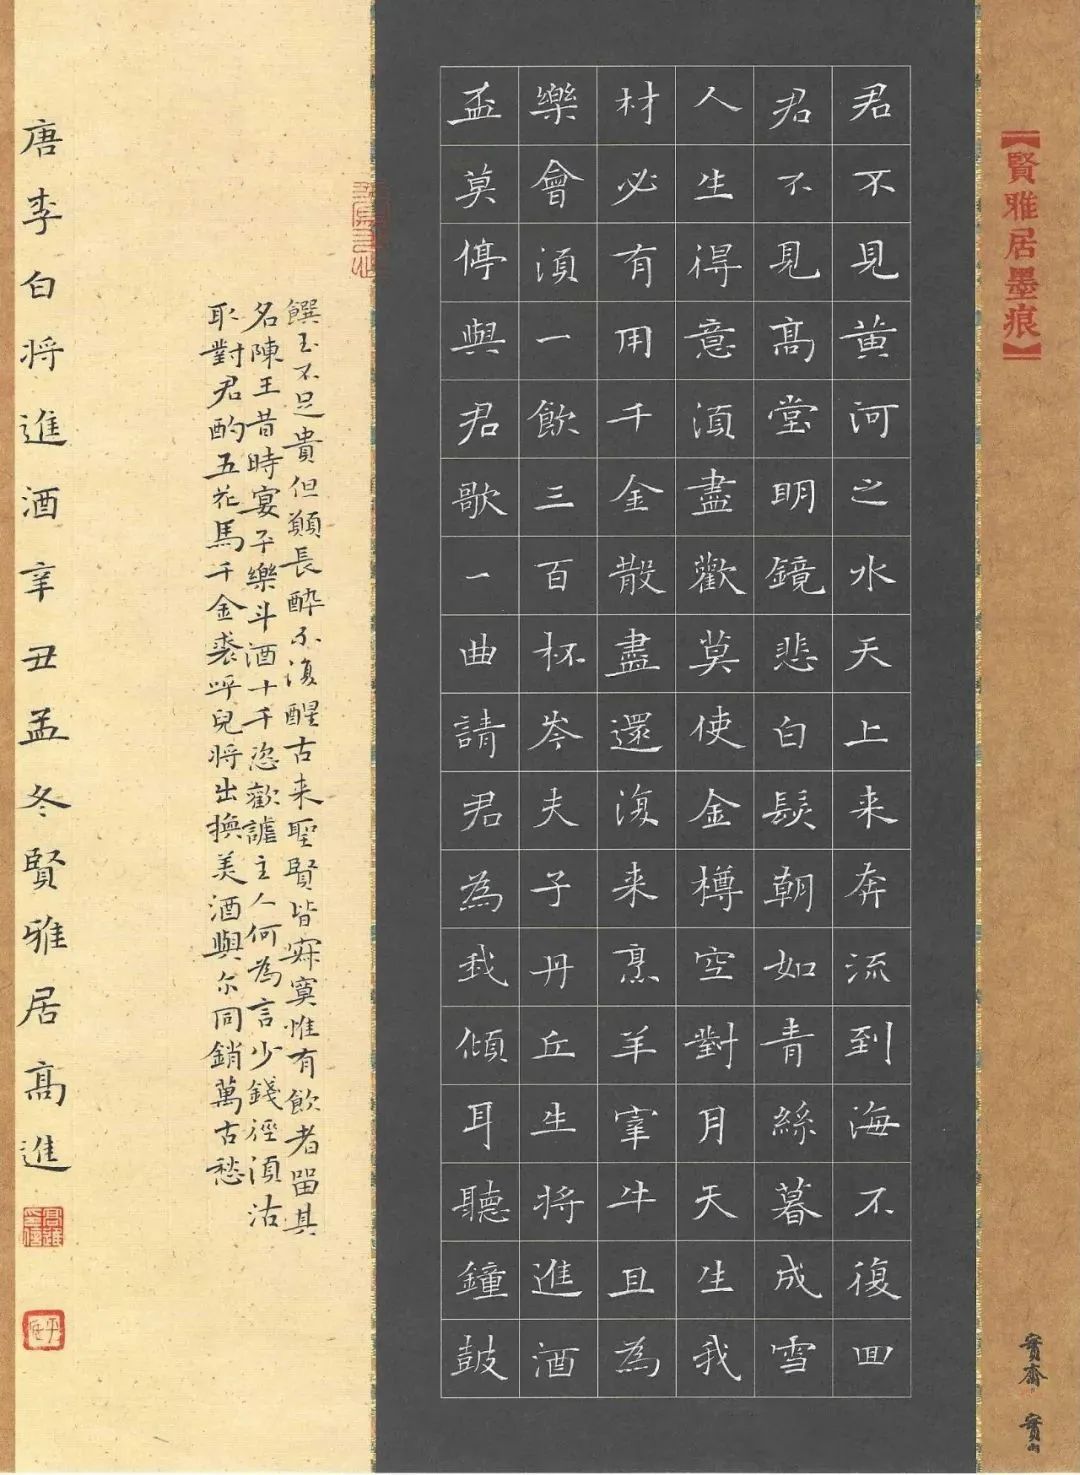 【賢雅居墨痕】
君不見黃河之水天上来奔流到海不復回
君不見髙堂明鏡悲白髮朝如青絲暮成雪
人生得意須盡歡莫使金樽空對月天生我
材必有用千金散盡還復来烹羊宰牛且為
樂會須一飲三百杯岑夫子丹丘生将進酒
盃莫停與君歌一曲請君為我傾耳聽鐘鼓
饌玉不足貴但願長醉不復醒古来聖賢皆寂寞惟有飲者留其
名陳王昔時宴平樂斗酒十千恣歡謔主人何為言少錢徑須沽
取對君酌五花馬千金裘呼兒将出換美酒與尔同銷萬古愁
唐李白将進酒辛丑孟冬賢雅居髙進